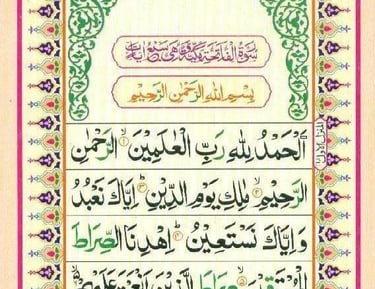 سُوْرَةُ الْفَاتِحَةِ مَكِّيَّةٌ وَّهِيَ سَبْعُ اٰيَاتٍ
بِسْمِ اللّٰهِ الرَّحْمٰنِ الرَّحِيْمِ
اَلْحَمْدُ لِلّٰهِ رَبِّ الْعٰلَمِيْنَ ۙ﴿۱﴾ الرَّحْمٰنِ
الرَّحِيْمِ ۙ﴿۲﴾ مٰلِكِ يَوْمِ الدِّيْنِ ؕ﴿۳﴾ اِيَّاكَ نَعْبُدُ
وَ اِيَّاكَ نَسْتَعِيْنُ ؕ﴿۴﴾ اِهْدِنَا الصِّرَاطَ
الْمُسْتَقِيْمَ ۙ﴿۵﴾ صِرَاطَ الَّذِيْنَ اَنْعَمْتَ عَلَيْهِمْ